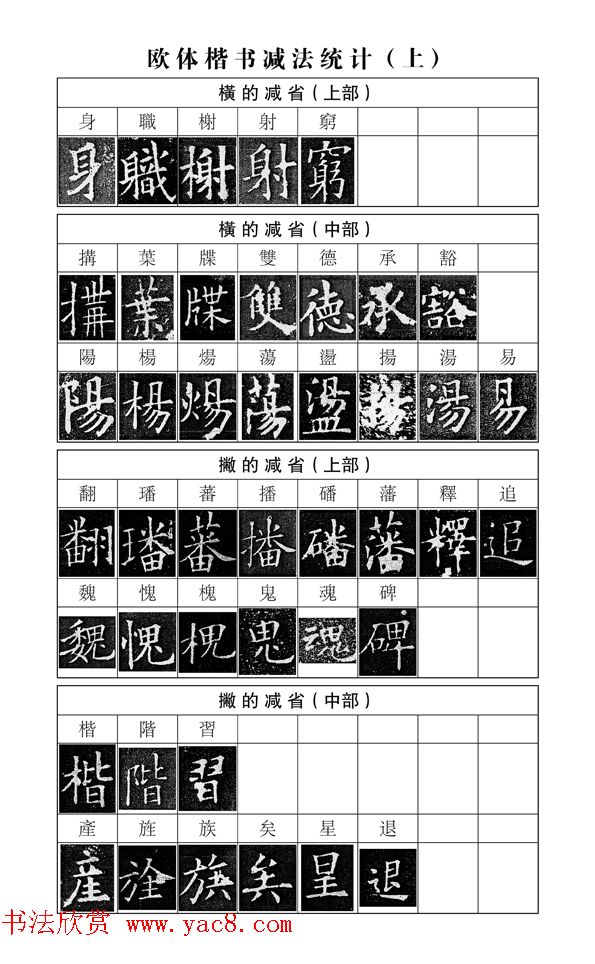 欧体楷书减法统计（上）
横的减省（上部）
身 職 榭 射 窮
身 職 榭 射 窮
横的减省（中部）
搆 葉 牒 雙 德 承 豁
搆 葉 牒 雙 德 承 豁
陽 楊 煬 蕩 盪 揚 湯 易
陽 楊 煬 蕩 盪 揚 湯 易
撇的减省（上部）
翻 璠 蕃 播 磻 藩 釋 追
翻 璠 蕃 播 磻 藩 釋 追
魏 愧 槐 鬼 魂 碑
魏 愧 槐 鬼 魂 碑
撇的减省（中部）
楷 階 習
楷 階 習
產 旌 族 矣 星 退
產 旌 族 矣 星 退
书法欣赏 www.yac8.com